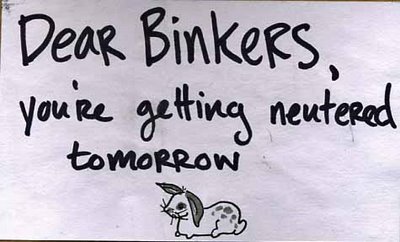 Dear Binkers,
you're getting neutered
tomorrow